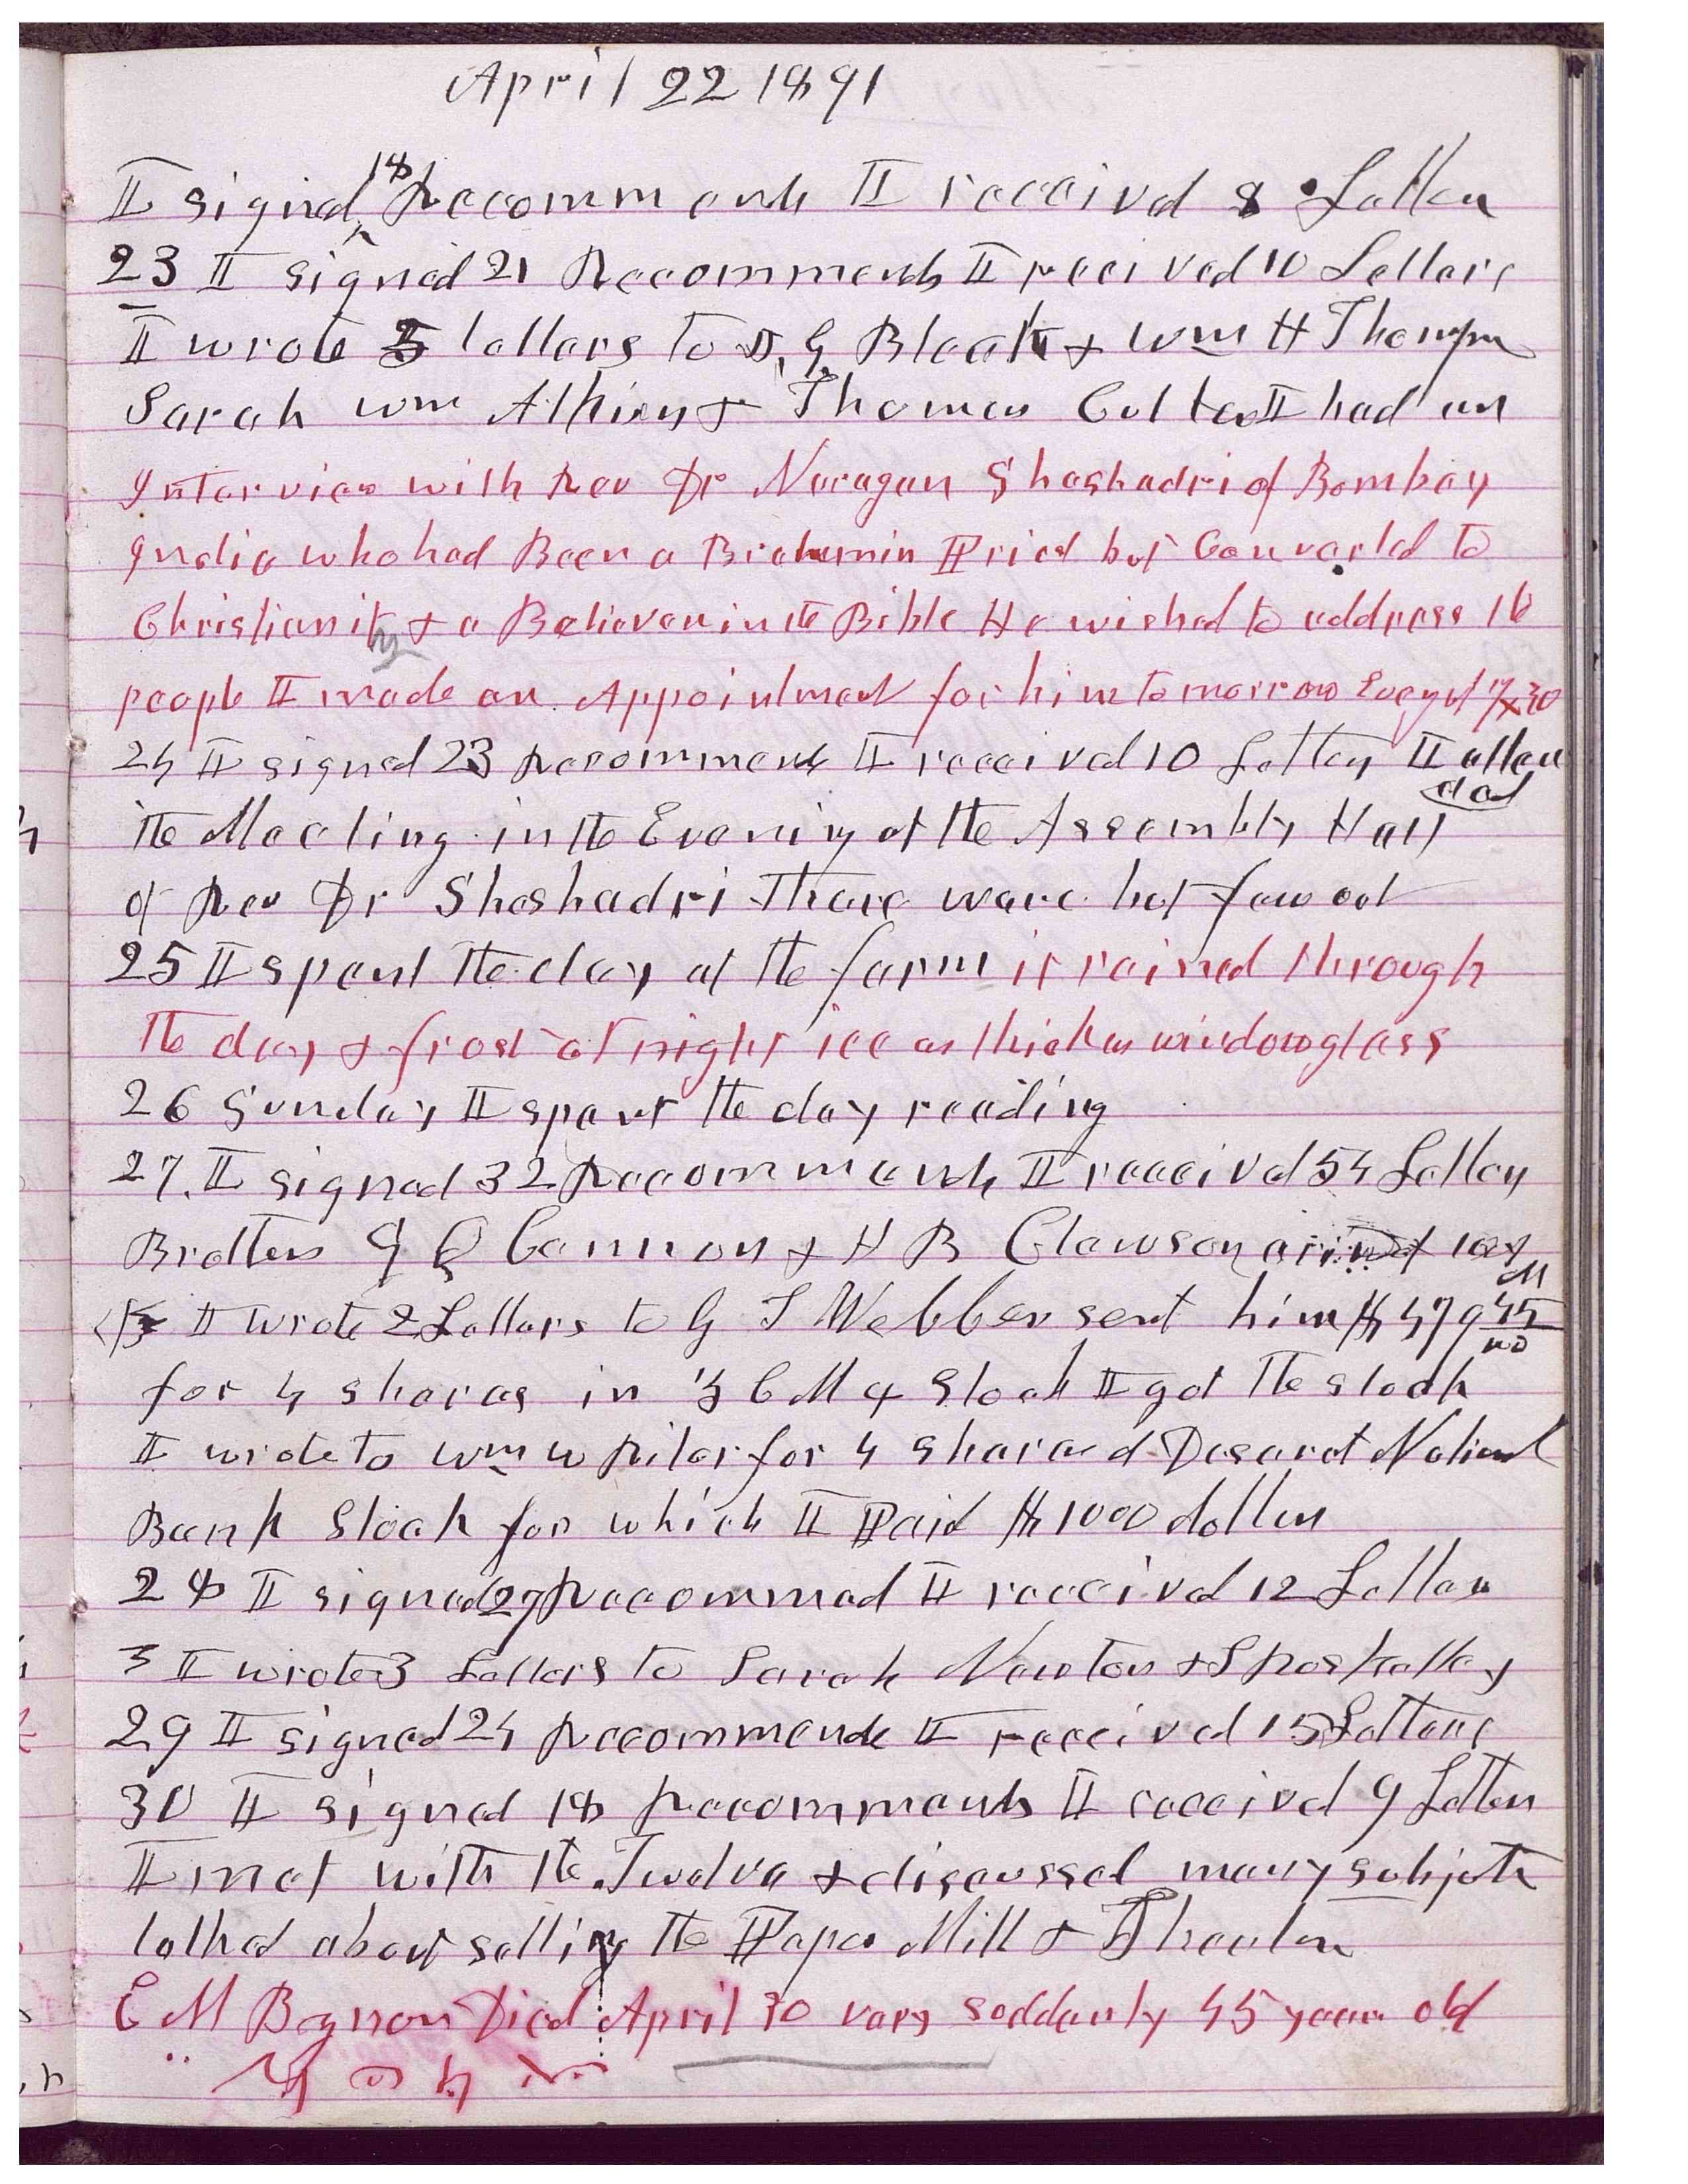 April 22 1891
I signed 18 Recommends I received 8 Letters
23 I signed 21 Recommends I received 10 Letters
I wrote 5 letters to & Wm H Thompson
Sarah Wm Atkin & Thomas Cottam I had an
Interview with Rev Dr Naragan Sheshadri of Bombay
India who had Been a Brahmin Priest but Converted to
Christianity & a Believer in the Bible He wished to address the
people I made an Appointment for him tomorrow Eveng at 7x30
24 I signed 23 Recommends I received 10 Letters I atten
ded
the Meeting in the Evening at the Assembly Hall
of Rev Dr Sheshadri There ware but few out
25 I spent the day at the farm it rained through
the day & frost at night ice as thick as window glass
26 Sunday I spent the day reading
27. I signed 32 Recommends I received 54 Letters
Brothers G Q Cannon & H B Clawson
I wrote 2 Letters to G T Webber sent him $479 45/00
for 4 shares in Stock I got the stock
I wrote to Wm W Riter for 4 shares of Deseret National
Bank Stock for which I Paid $1000 dollars
28 I signed 29 Recommend I received 12 Letters
3 I wrote 3 Letters to Sarah Newton &
29 I signed 24 Recommends I received 15 Letters
30 I signed 18 Recommends I received 9 Letters
I met with the Twelve & discussed many subjects
talked about selling the Paper Mill & Theater
E M Bynon Died April 30 vary suddenly 45 years old